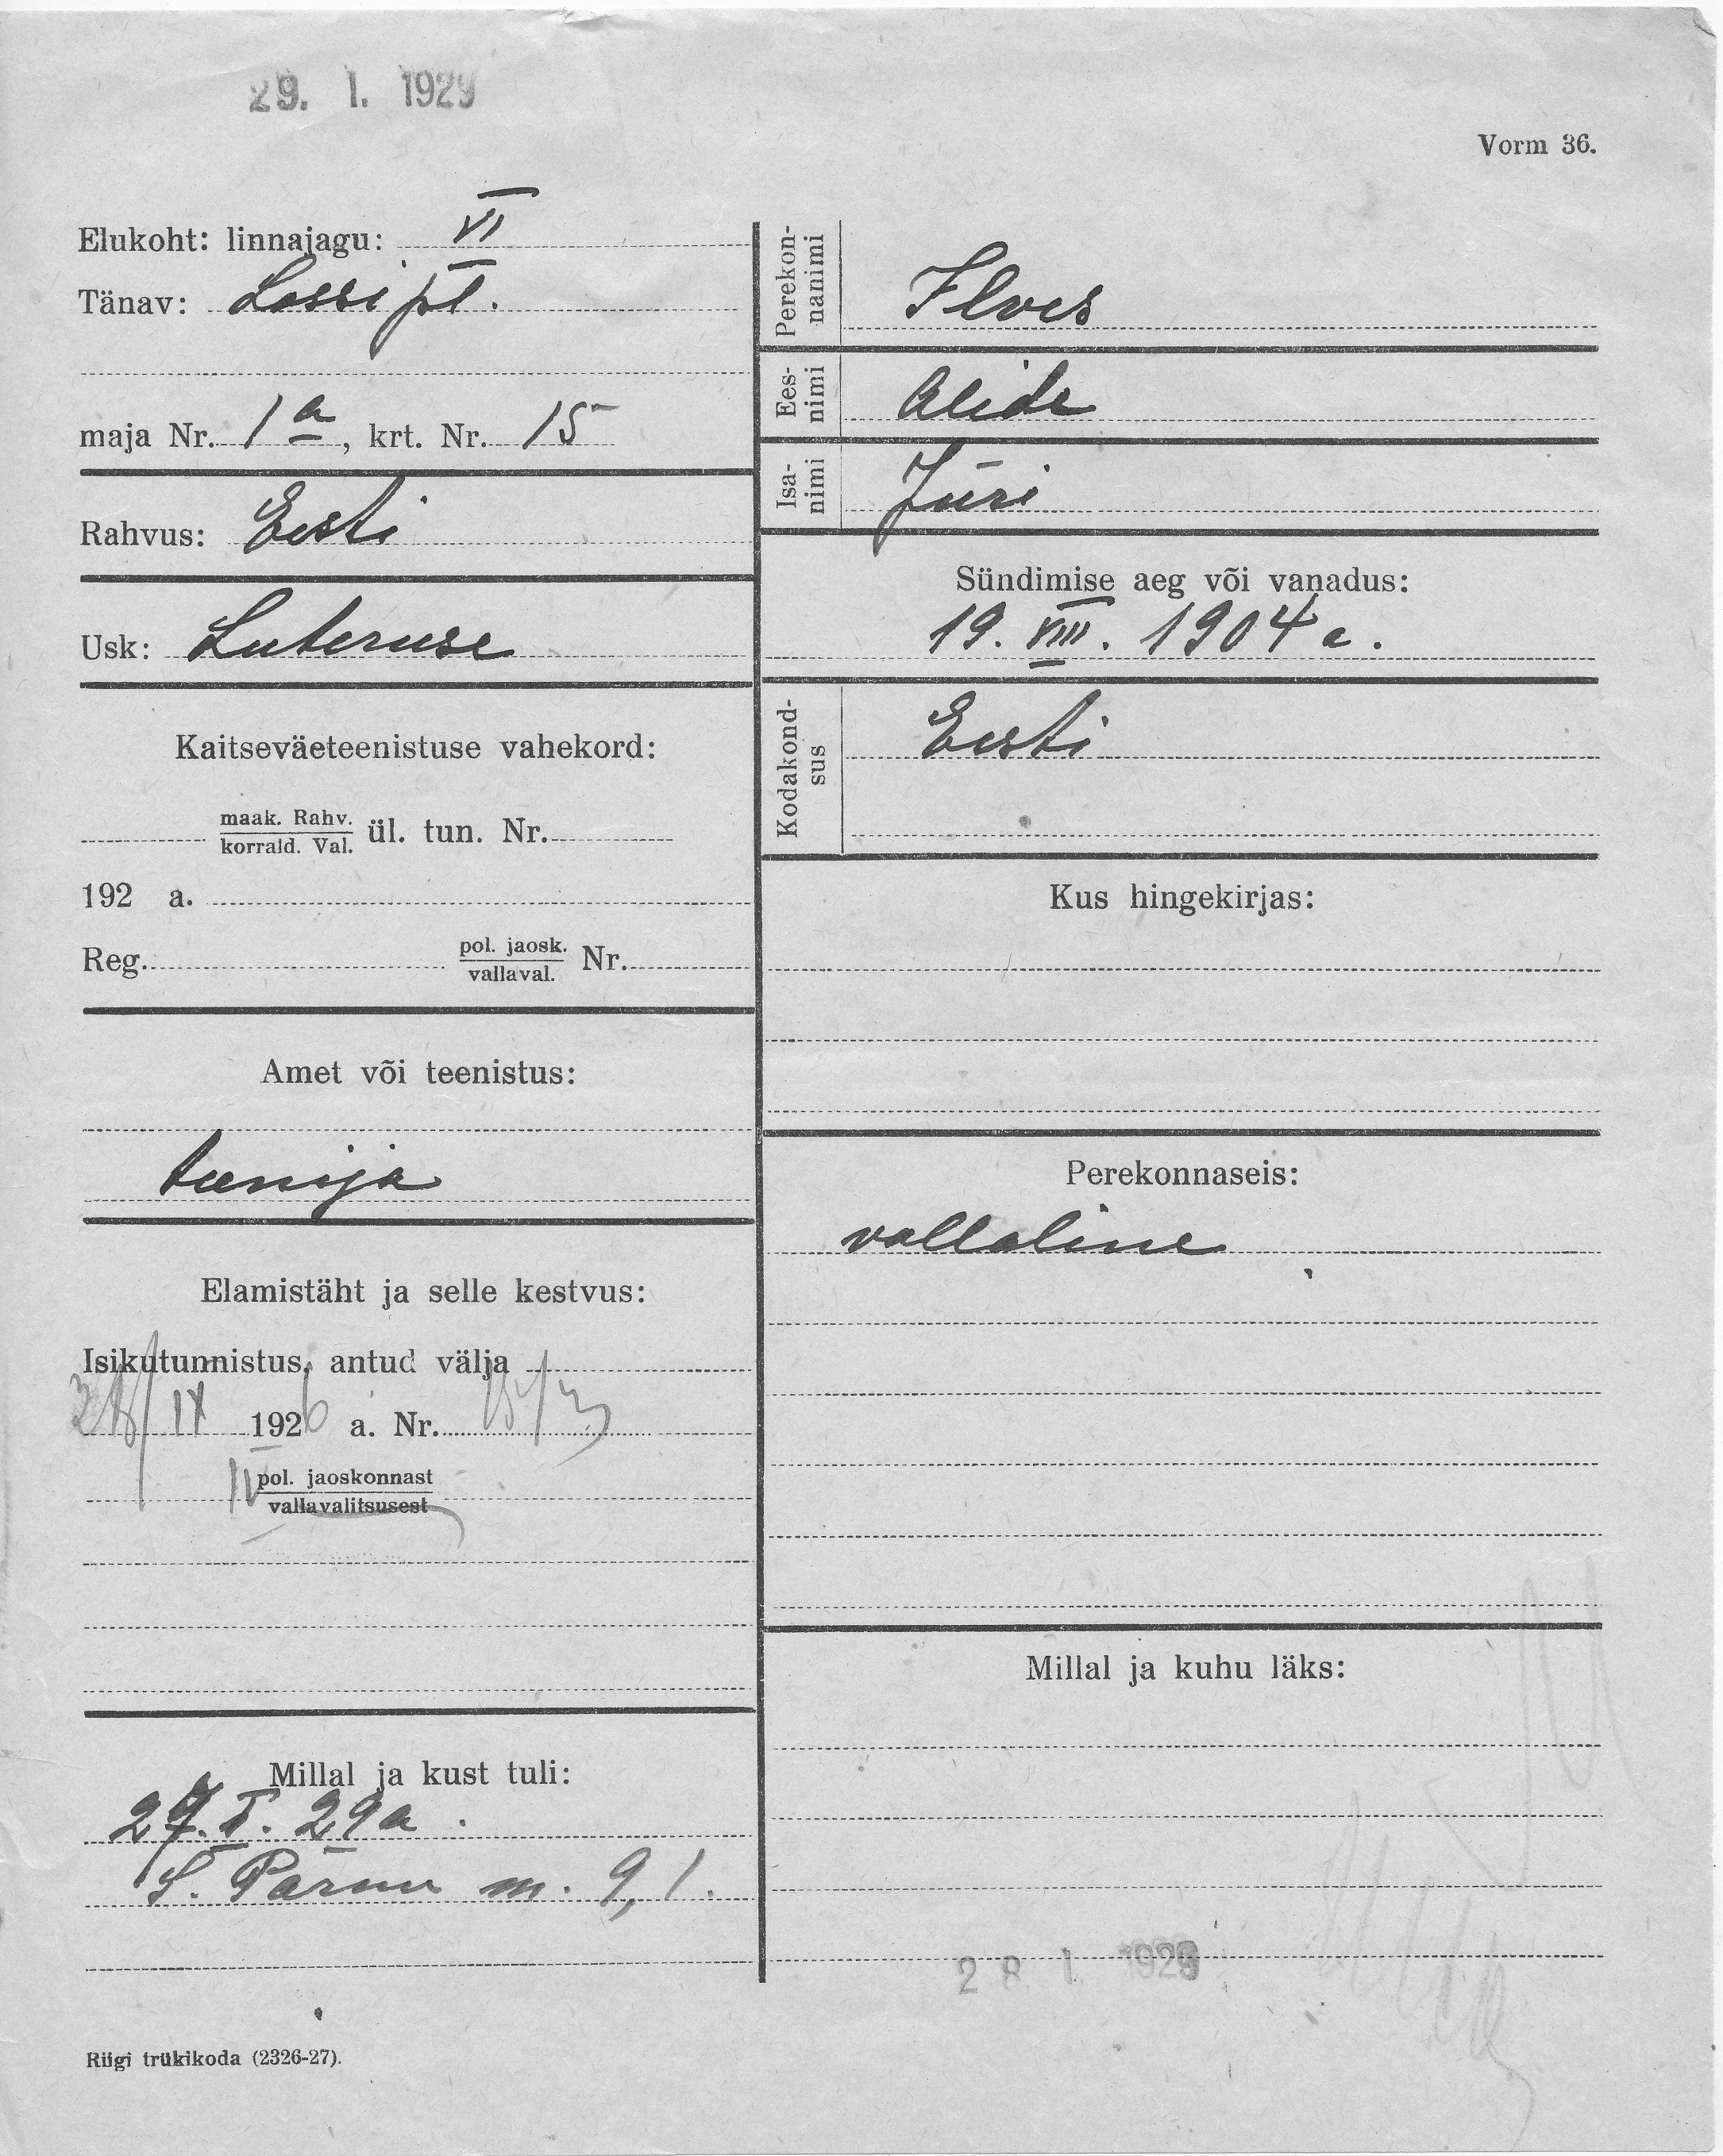 29. I. 1929
Vorm 36.
Elukoht: linnajagu: VI
Tänav: Lossi pl.
maja Nr. 1 a, krt. Nr. 15
Rahvus: Eesti
Usk: Luteruse
Kaitseväeteenistuse vahekord:
maak. Rahv.
korrald. Val. ül. tun. Nr.
192 a.
Reg. pol. jaosk.
vallaval. Nr.
Amet või teenistus:
teenija
Elamistäht ja selle kestvus:
Isikutunnistus, antud välja
IX 1926 a. Nr.
IV pol. jaoskonnast
vallavalitsusest
Millal ja kust tuli:
27. I. 29 a.
S. Pärnu m. 9, 1.
Riigi trükikoda (2326-27).
Perekon-
nanimi
Ilves
Ees-
nimi
Alide
Isa-
nimi
Jüri
Sündimise aeg või vanadus:
19. VIII. 1904 a.
Kodakond-
sus
Eesti
Kus hingekirjas:
Perekonnaseis:
vallaline
Millal ja kuhu läks:
28 I. 1929